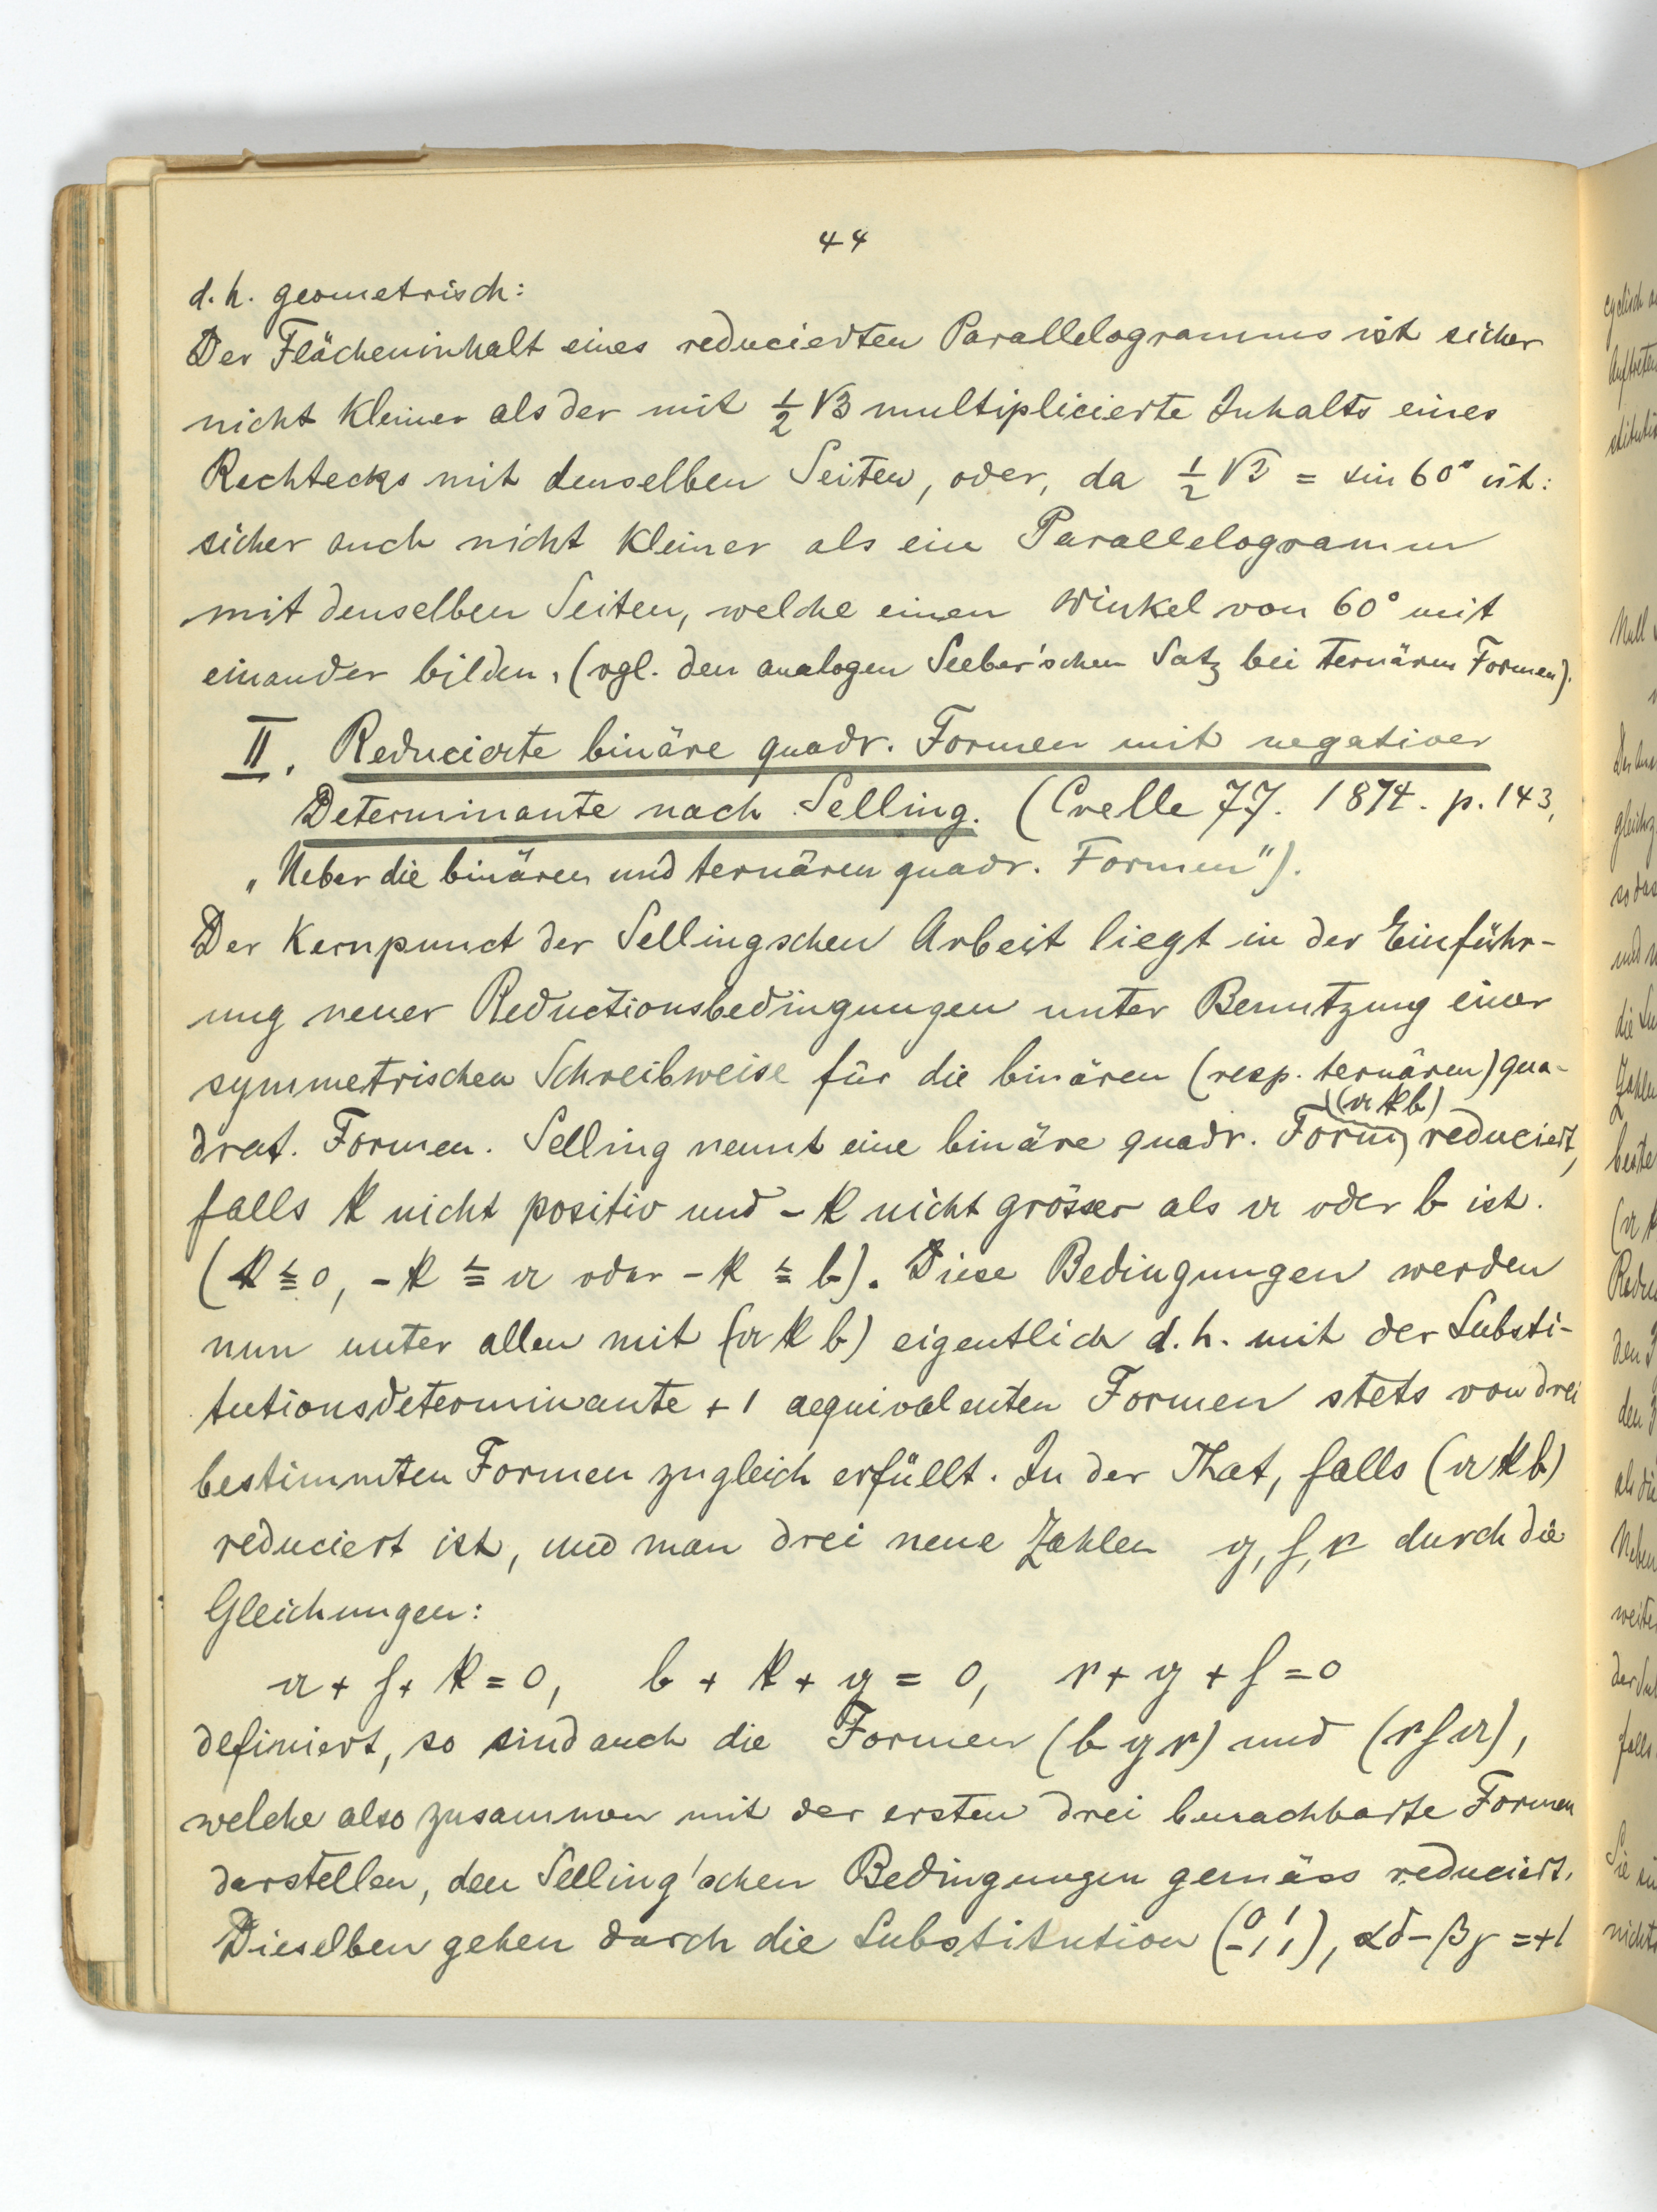 44
d. h. geometrisch:
Der Flächeninhalt eines reducierten Parallelogramms ist sicher
nicht kleiner als der mit ½ √3 multiplicierte Inhalts eines
Rechtecks mit denselben Seiten, oder, da ½ √3 = sin 60° ist:
sicher auch nicht kleiner als ein Parallelogramm
mit denselben Seiten, welche einen Winkel von 60° mit
einander bilden, (vgl. den analogen Seeber'schen Satz bei ternären Formen).
II. Reducierte binäre quadr. Formen mit negativer
Determinante nach Selling. (Crelle 77. 1874. p. 143,
„Ueber die binären und ternären quadr. Formen").
Der Kernpunct der Sellingschen Arbeit liegt in der Einführ-
ung neuer Reductionsbedingungen unter Benutzung einer
symmetrischen Schreibweise für die binären (resp. ternären) qua-
drat. Formen. Selling nennt eine binäre quadr. Form (a k b) reduciert,
falls k nicht positiv und - k nicht grösser als a oder b ist.
(k ≦ 0, - k ≦ a oder - k ≦ b). Diese Bedingungen werden
nun unter allen mit (a k b) eigentlich d. h. mit der Substi-
tutionsdeterminante + 1 aequivalenten Formen stets von drei
bestimmten Formen zugleich erfüllt. In der That, falls (a k b)
reduciert ist, und man drei neue Zahlen g, f, r durch die
Gleichungen:
a + f + k = 0, b + k + g = 0, r + g + f = 0
definiert, so sind auch die Formen (b g r) und (r f a),
welche also zusammen mit der ersten drei benachbarte Formen
darstellen, den Selling'schen Bedingungen gemäss reduciert.
Dieselben gehen durch die Substitution (0 1 -1 1), αδ - βγ = +1